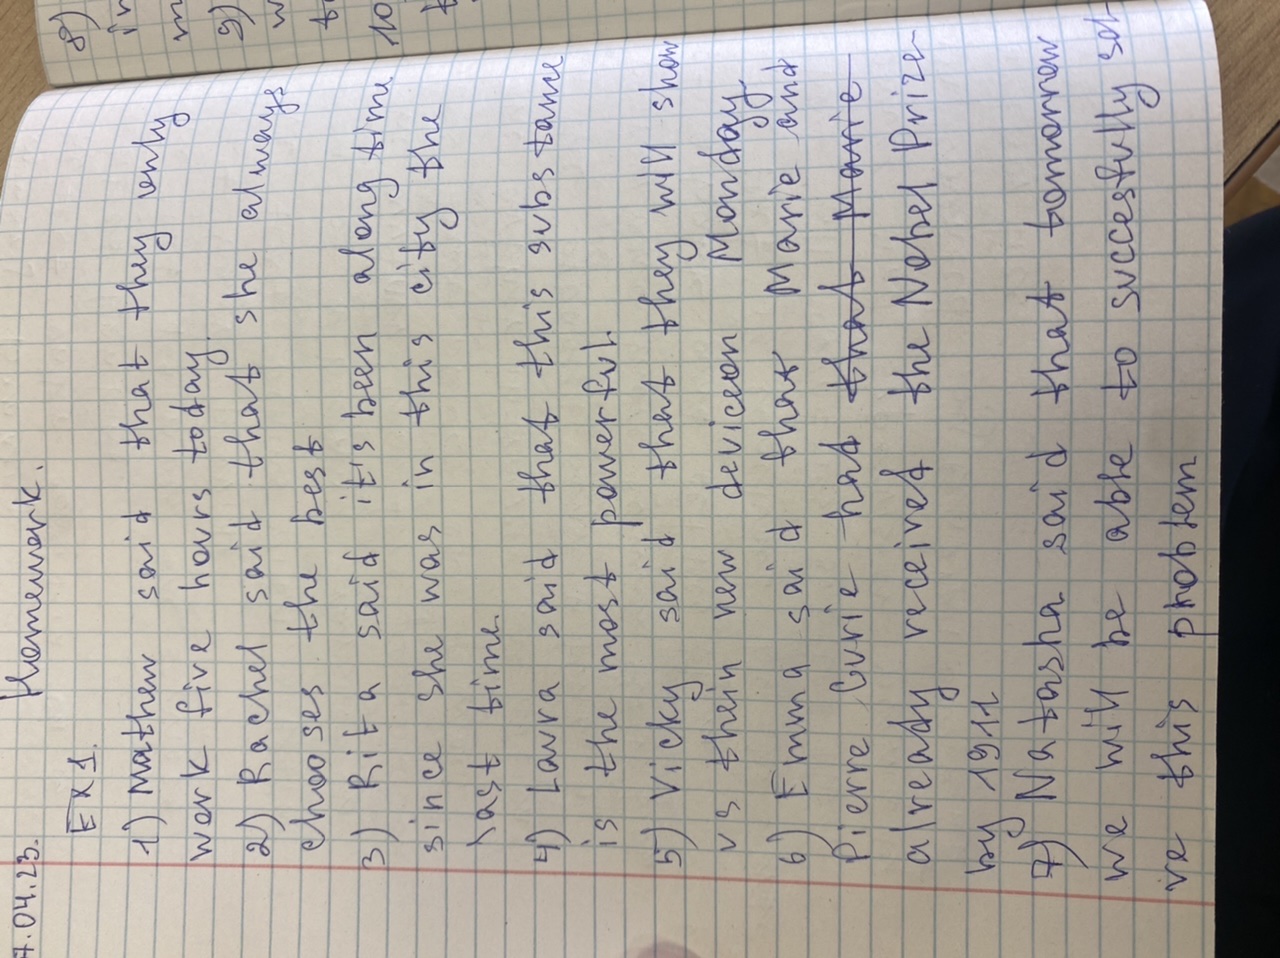 7.04.23. Homework.
Ex 1.
1) Mathew said that they only
work five hours today.
2) Rachel said that she always
chooses the best
3) Rita said it's been along time
since she was in this city the
last time.
4) Laura said that this substance
is the most powerful.
5) Vicky said that they will show
us their new device on Monday.
6) Emma said that Marie and
Pierre Curie had that Marie
already received the Nobel Prize
by 1911
7) Natasha said that tomorrow
we will be able to succesfully sol-
ve this problem
8)
9)
10